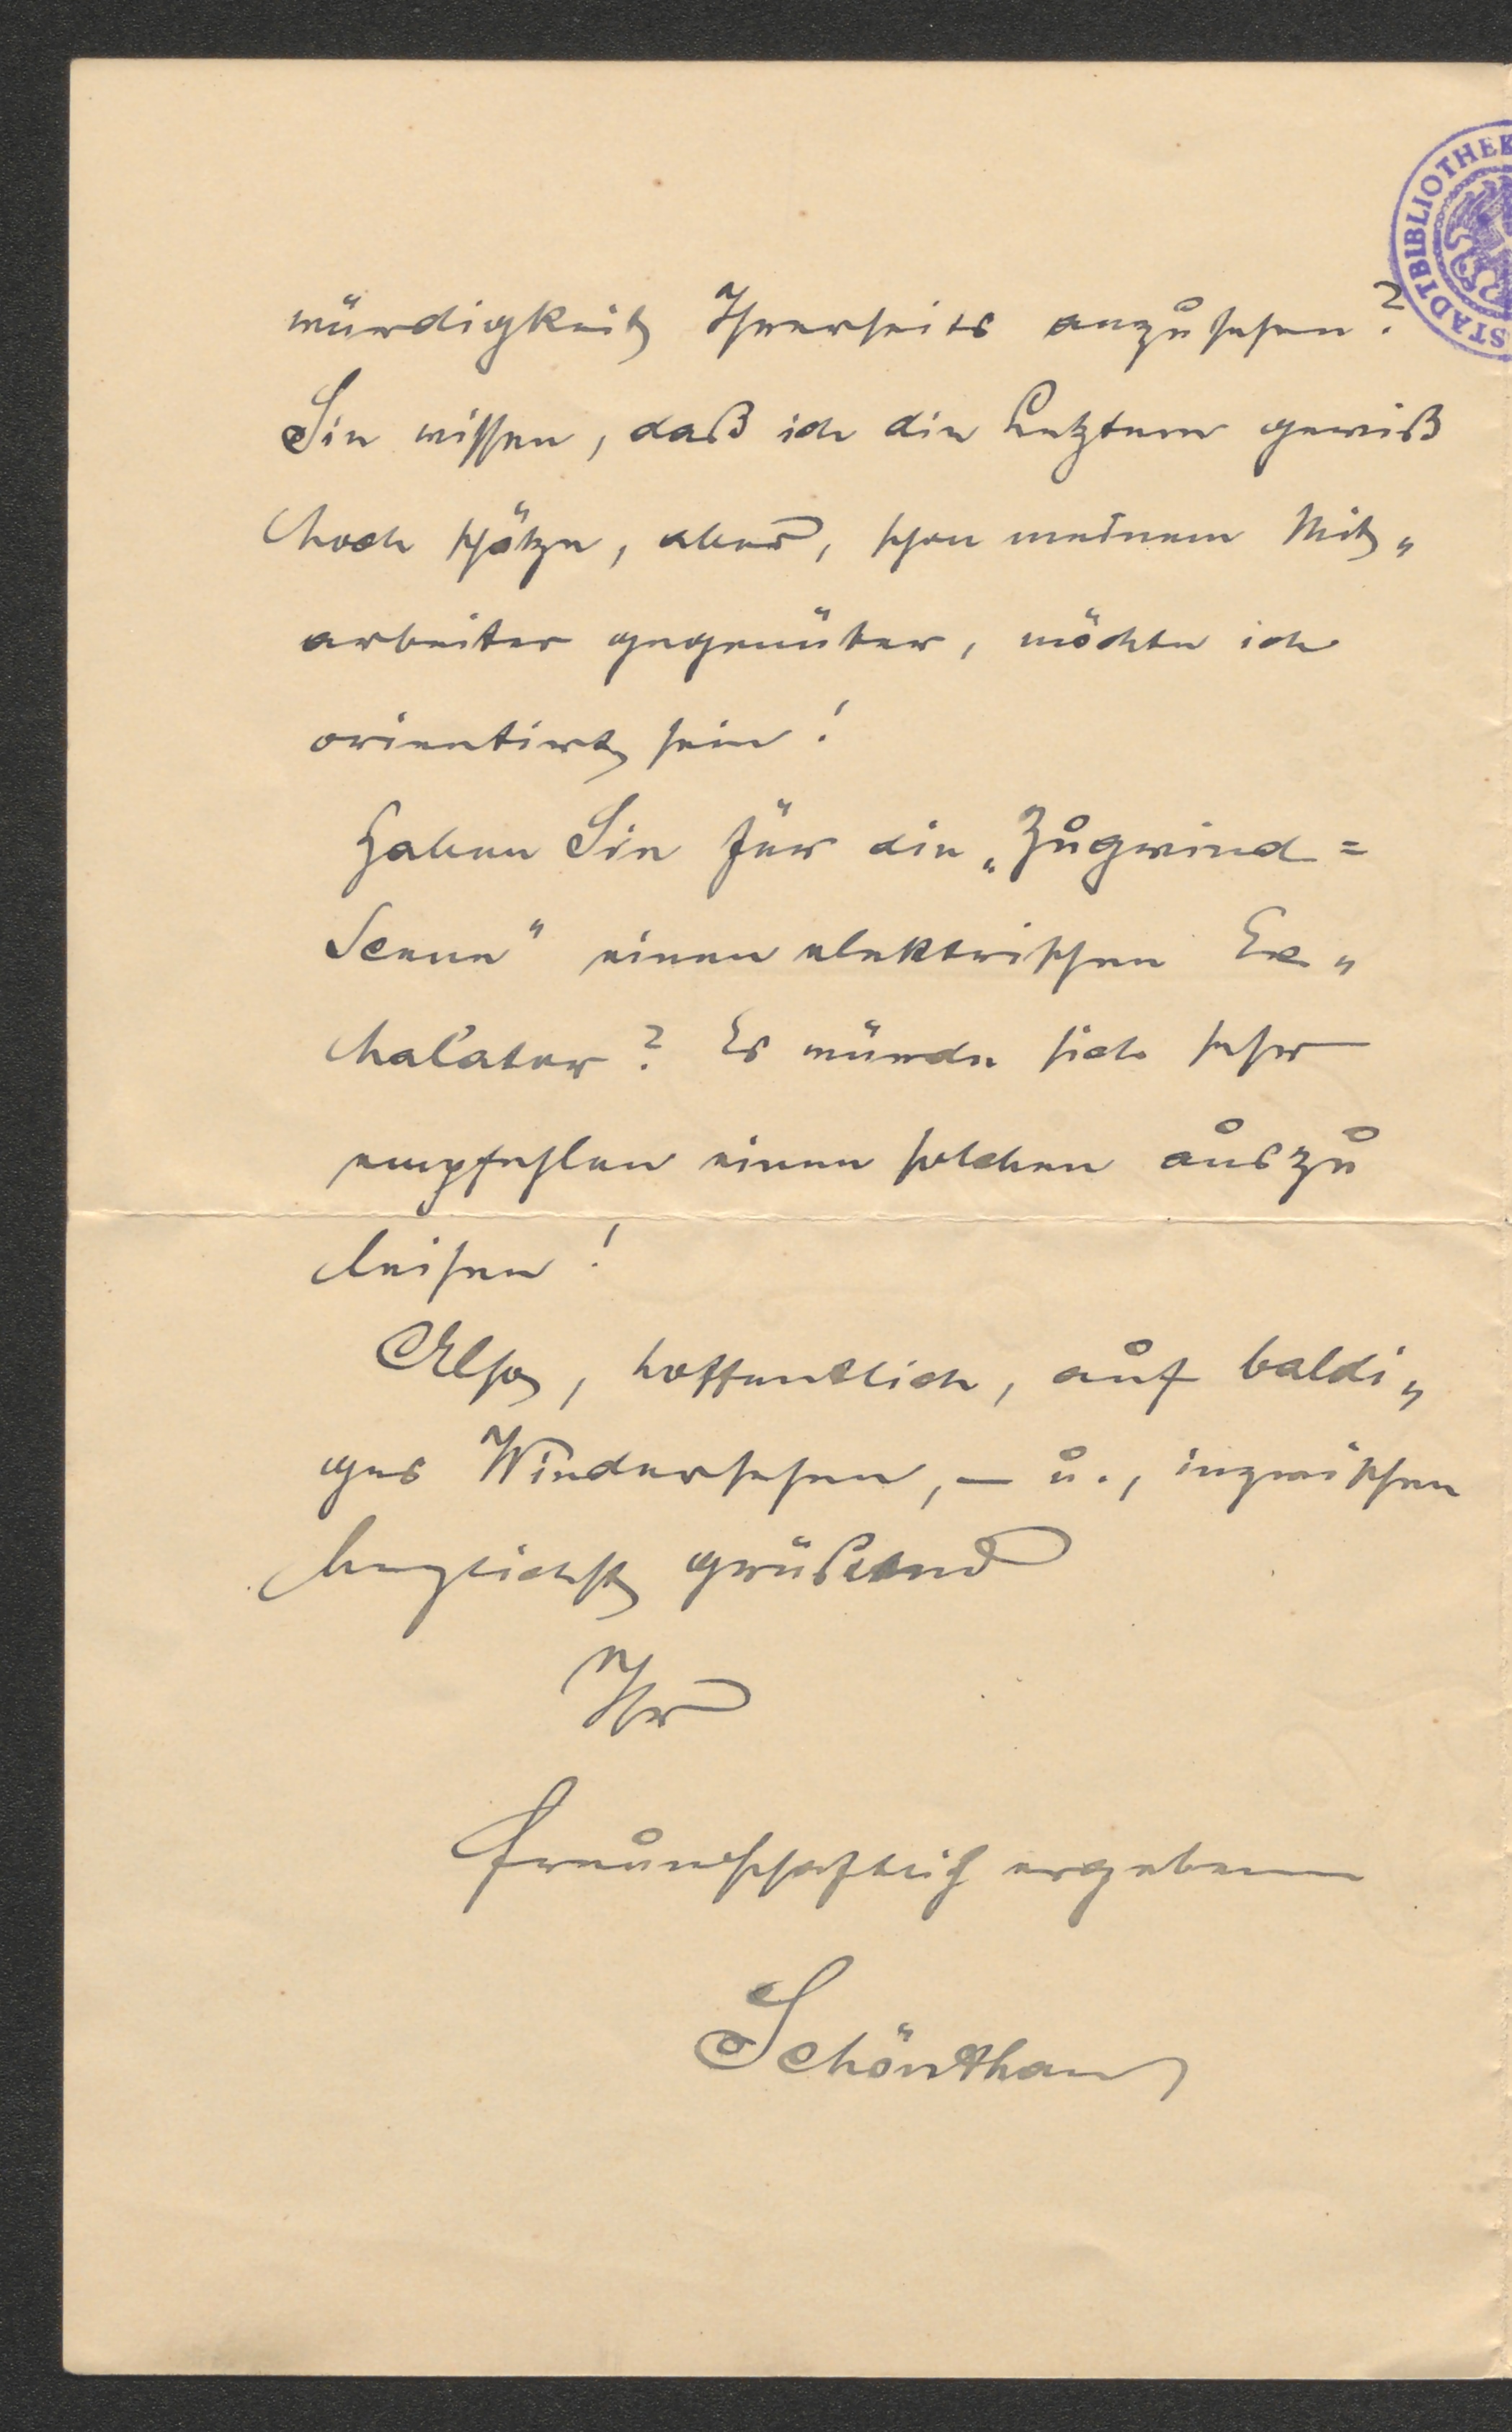 STADTBIBLIOTHEK
würdigkeit Ihrerseits anzusehen?
Sie wissen, daß ich die Letztere gewiß
hoch schätze, aber, schon meinem Mit„
arbeiter gegenüber, möchte ich
orientirt sein!
Haben Sie für die „Zugwind=
Scene“ einen elektrischen Ex„
halator? Es würde sich sehr
empfehlen einen solchen auszu
leihen!
Also, hoffentlich, auf baldi„
ges Wiedersehen, – u., inzwischen
herzlichst grüßend
Ihr
freundschaftlich ergebener
Schönthan